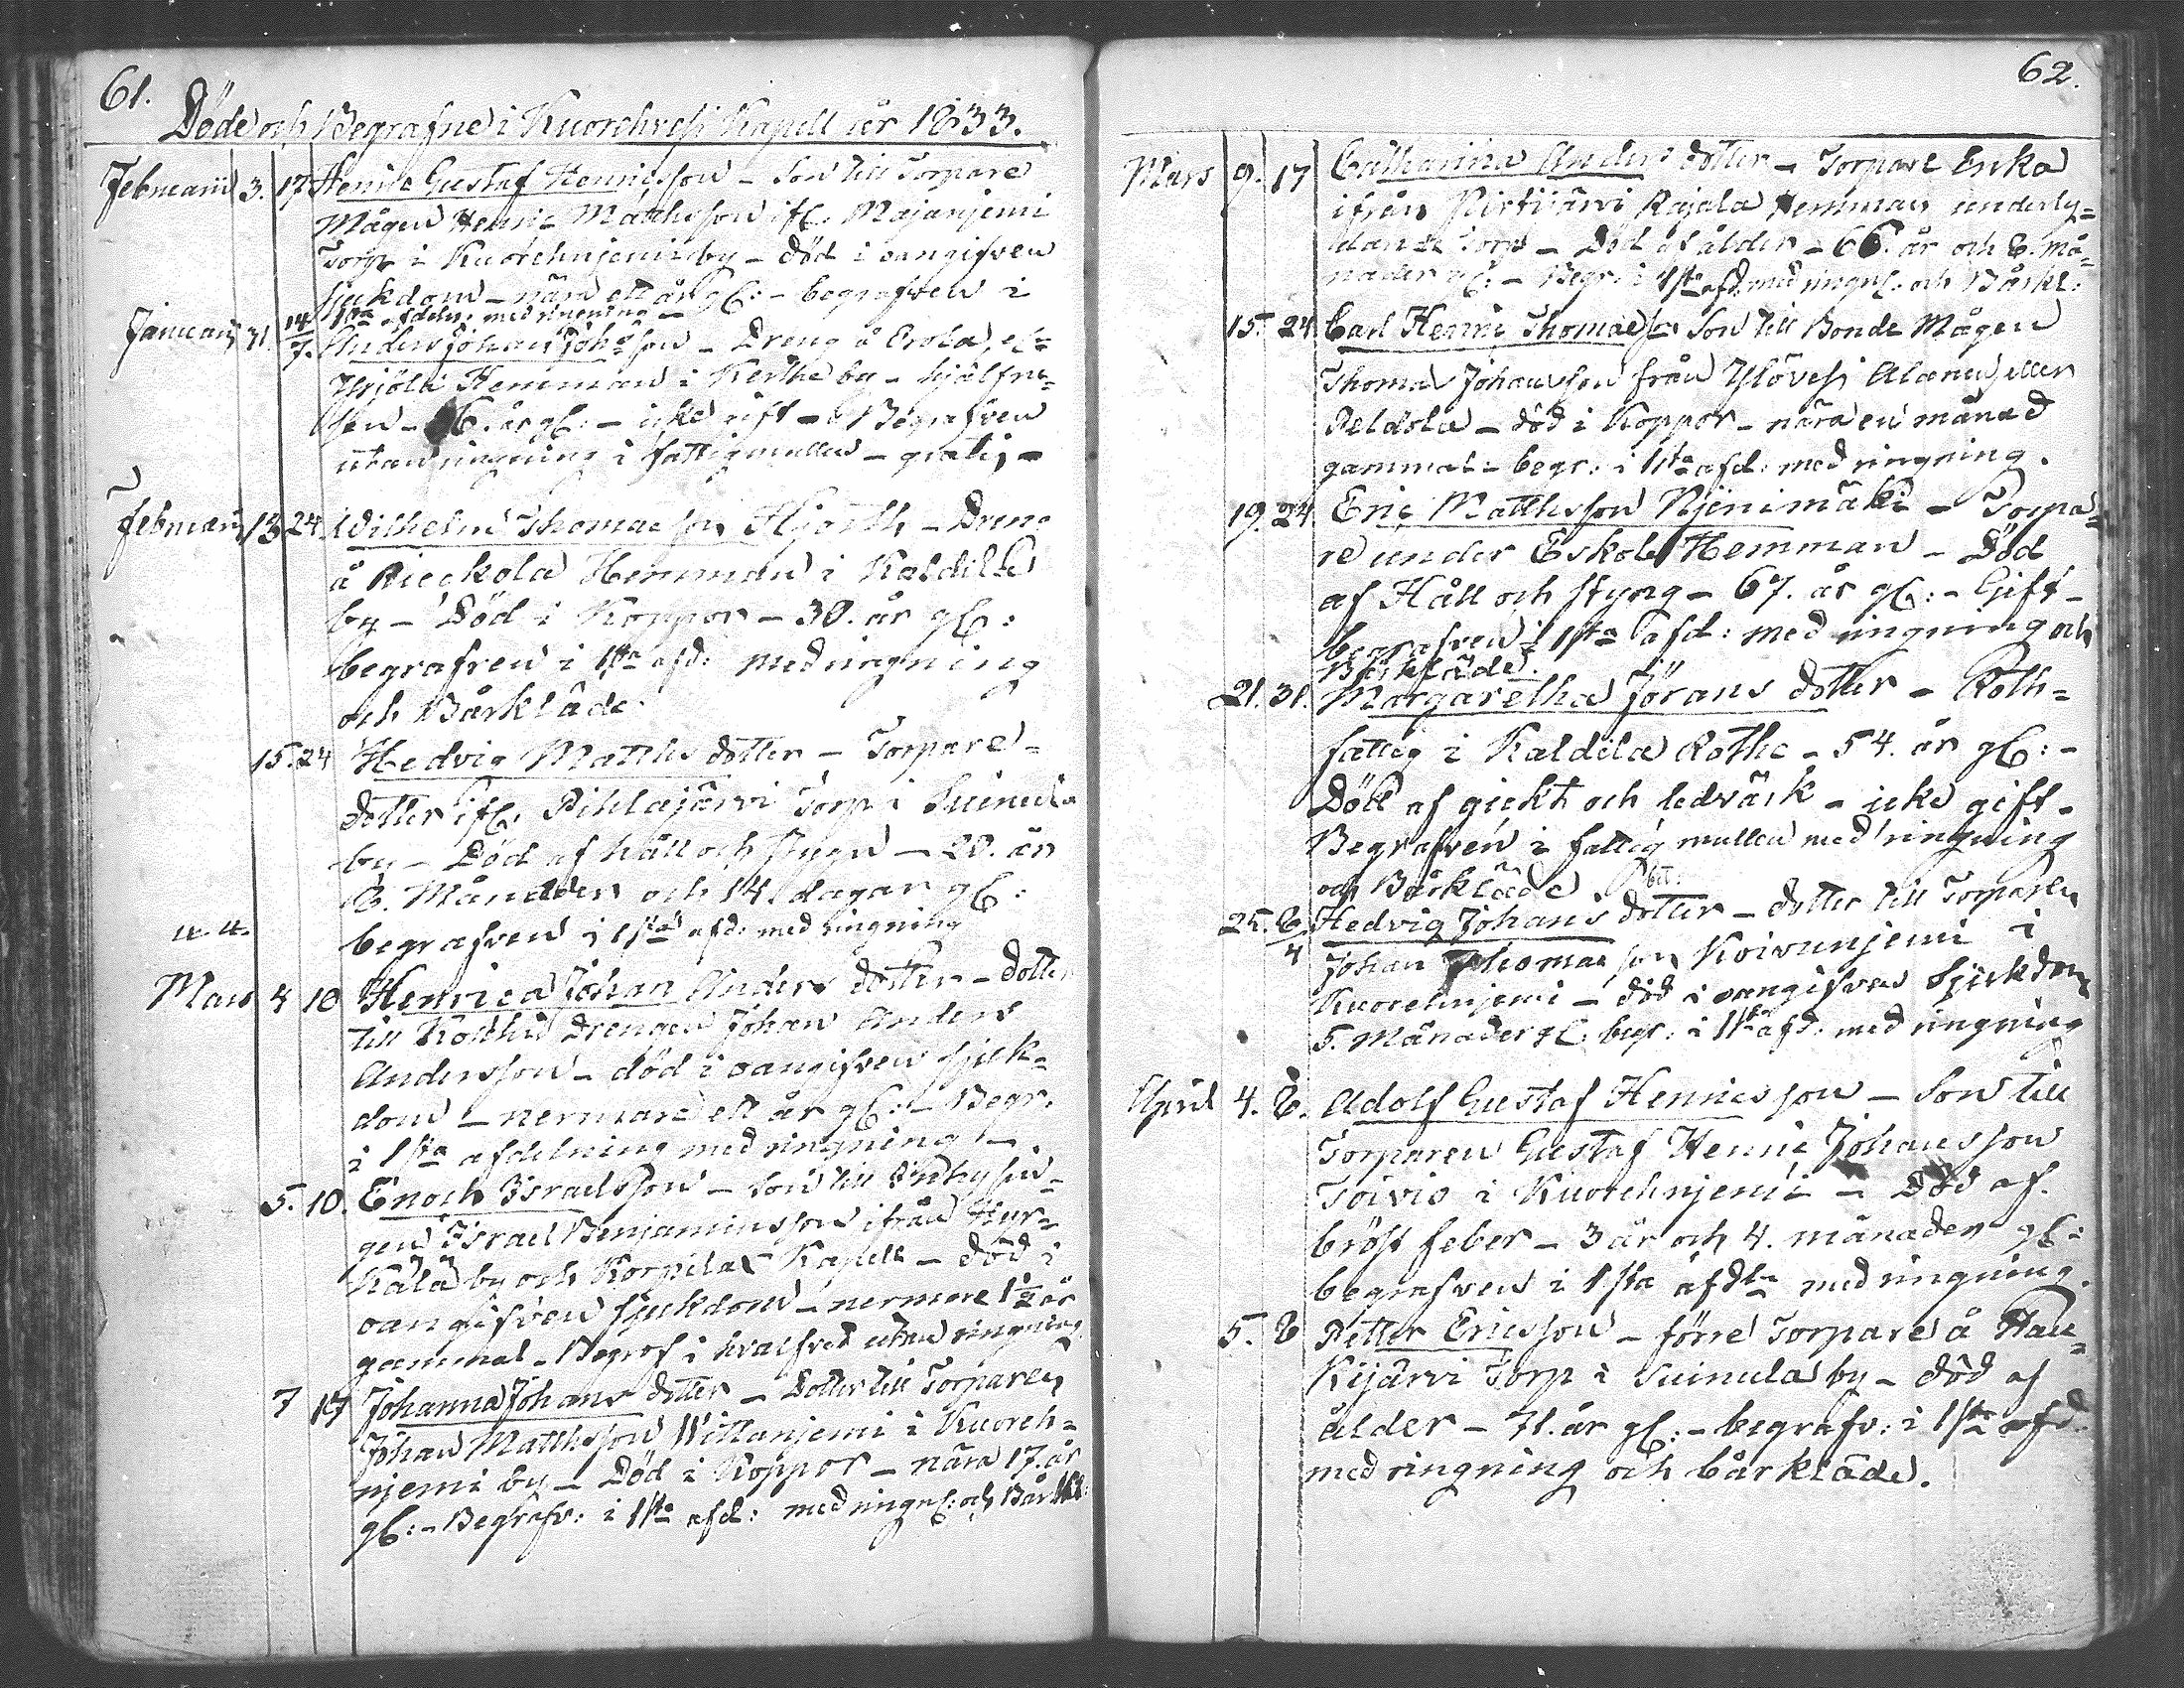 61.
Döde och Begrafne i Kuorehvesi Kapell år 1833.
Februarii 3. 17 Henric Gustaf Henricsson – Son till Torpare
Mågen Henric Matthsson ifr: Majanjemi
Torp i Kuorehnjemi by – död i oangifven
sjukdom – nära ett år gl: – begrafven i
1sta afdeln: med ringning –
Januarii 31. 14/7. Anders Johan Johsson – Dreng å Erola, el=
Yrjölä Hemman i Kerthe by –
6. år gl: – icke gift – Begrafven
utan ringning i fattigmullen – gratis –
Februarii 13 24 Wilhelm Thomasson Hjorth – Dreng
å Rieckola Hemman i Kaldila
by – Död i Koppor – 30. år gl:
begrafven i 1sta afd: med ringning
och Bårkläde.
15. 24 Hedvig Matths dotter – Torpare=
dotter ifr. Pihlajärvi Torp i Suinula
by – Död af håll och styng – 20. år
8. Månader och 14 dagar gl:
begrafven i 1sta afd: med ringning
Mars 4 10 Henrica Johan Anders dotter – dotter
till Drengen Johan Anders
Andersson – död i oangifven sjuk=
dom – nermare ett år gl: – Begr.
i 1sta afdelning med ringning –
5. 10. Enoch Israelsson – Son till Inhysin=
gen Israel Benjaminsson ifrån
Kälä by och Korpilax Kapell – död i
oangifven sjukdom – nermare 1½ år
gammal – Begrof i hvalfvet utan ringning
7 17 Johanna Johans dotter – Dotter till Torparen
Johan Matthsson Wittanjemi i Kuoreh=
njemi by – Död i Koppor – nära 17. år
gl: – Begrafv: i 1sta afd: med ringn: och Bårkl:
62.
Mars 9. 17 Catharina Anders dotter – Torpare Enka
ifrån Pirttijärvi Rajala Hemman underly=
dande Torp – Död af ålder – 66. år och 8. må=
nader gl: – Begr: i 1sta afd: med ringn: och Bårkl:
15. 24 Carl Henric Thomasson Son till Bonde Mågen
Thomas Johansson från Ylövesi Alanen eller
Peldola – död i Koppor – nära en månad
gammal – begr: i 1sta afd: med ringning.
19. 24 Eric Matthsson Njenimäki – Torpa=
re under Eskola Hemman – Död
af Håll och styng – 67. år gl: – Gift –
begrafven i 1sta afd: med ringning och
Bårkläde.
21. 31. Margaretha Jörans dotter – Roth=
fattig i Kaldila Rothe – 54. år gl: –
Död af gickt och ledvärk – icke gift –
Begrafven i fattig mullen med ringning
och Bårkläde
25. 8/4 Hedvig Johans dotter – dotter till Torparen
Johan Thomasson Koivunjemi i
Kuorehnjemi – död i oangifven Sjukdom
5. Månader gl: begr: i 1sta afd: med ringning
April 4. 8. Adolf Gustaf Henricsson – Son till
Torparen Gustaf Henric Johansson
Toivio i Kuorehnjemi – Död af
bröst feber – 3 år och 4. månader gl:
begrafven i 1sta afdln med ringning.
5. 8 Petter Ericsson – förre Torpare å Hau=
kijärvi Torp i Suinula by – död af
ålder – 71. år gl: – begrafv: i 1sta afd.
med ringning och bårkläde.